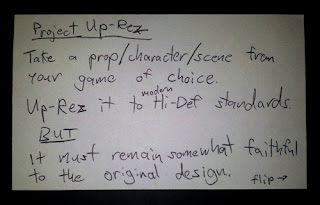 Project Up-Rez
Take a prop/character/scene from
your game of choice.
Up-Rez it to modern Hi-Def standards
BUT
It must remain somewhat faithful
to the original design.
flip→